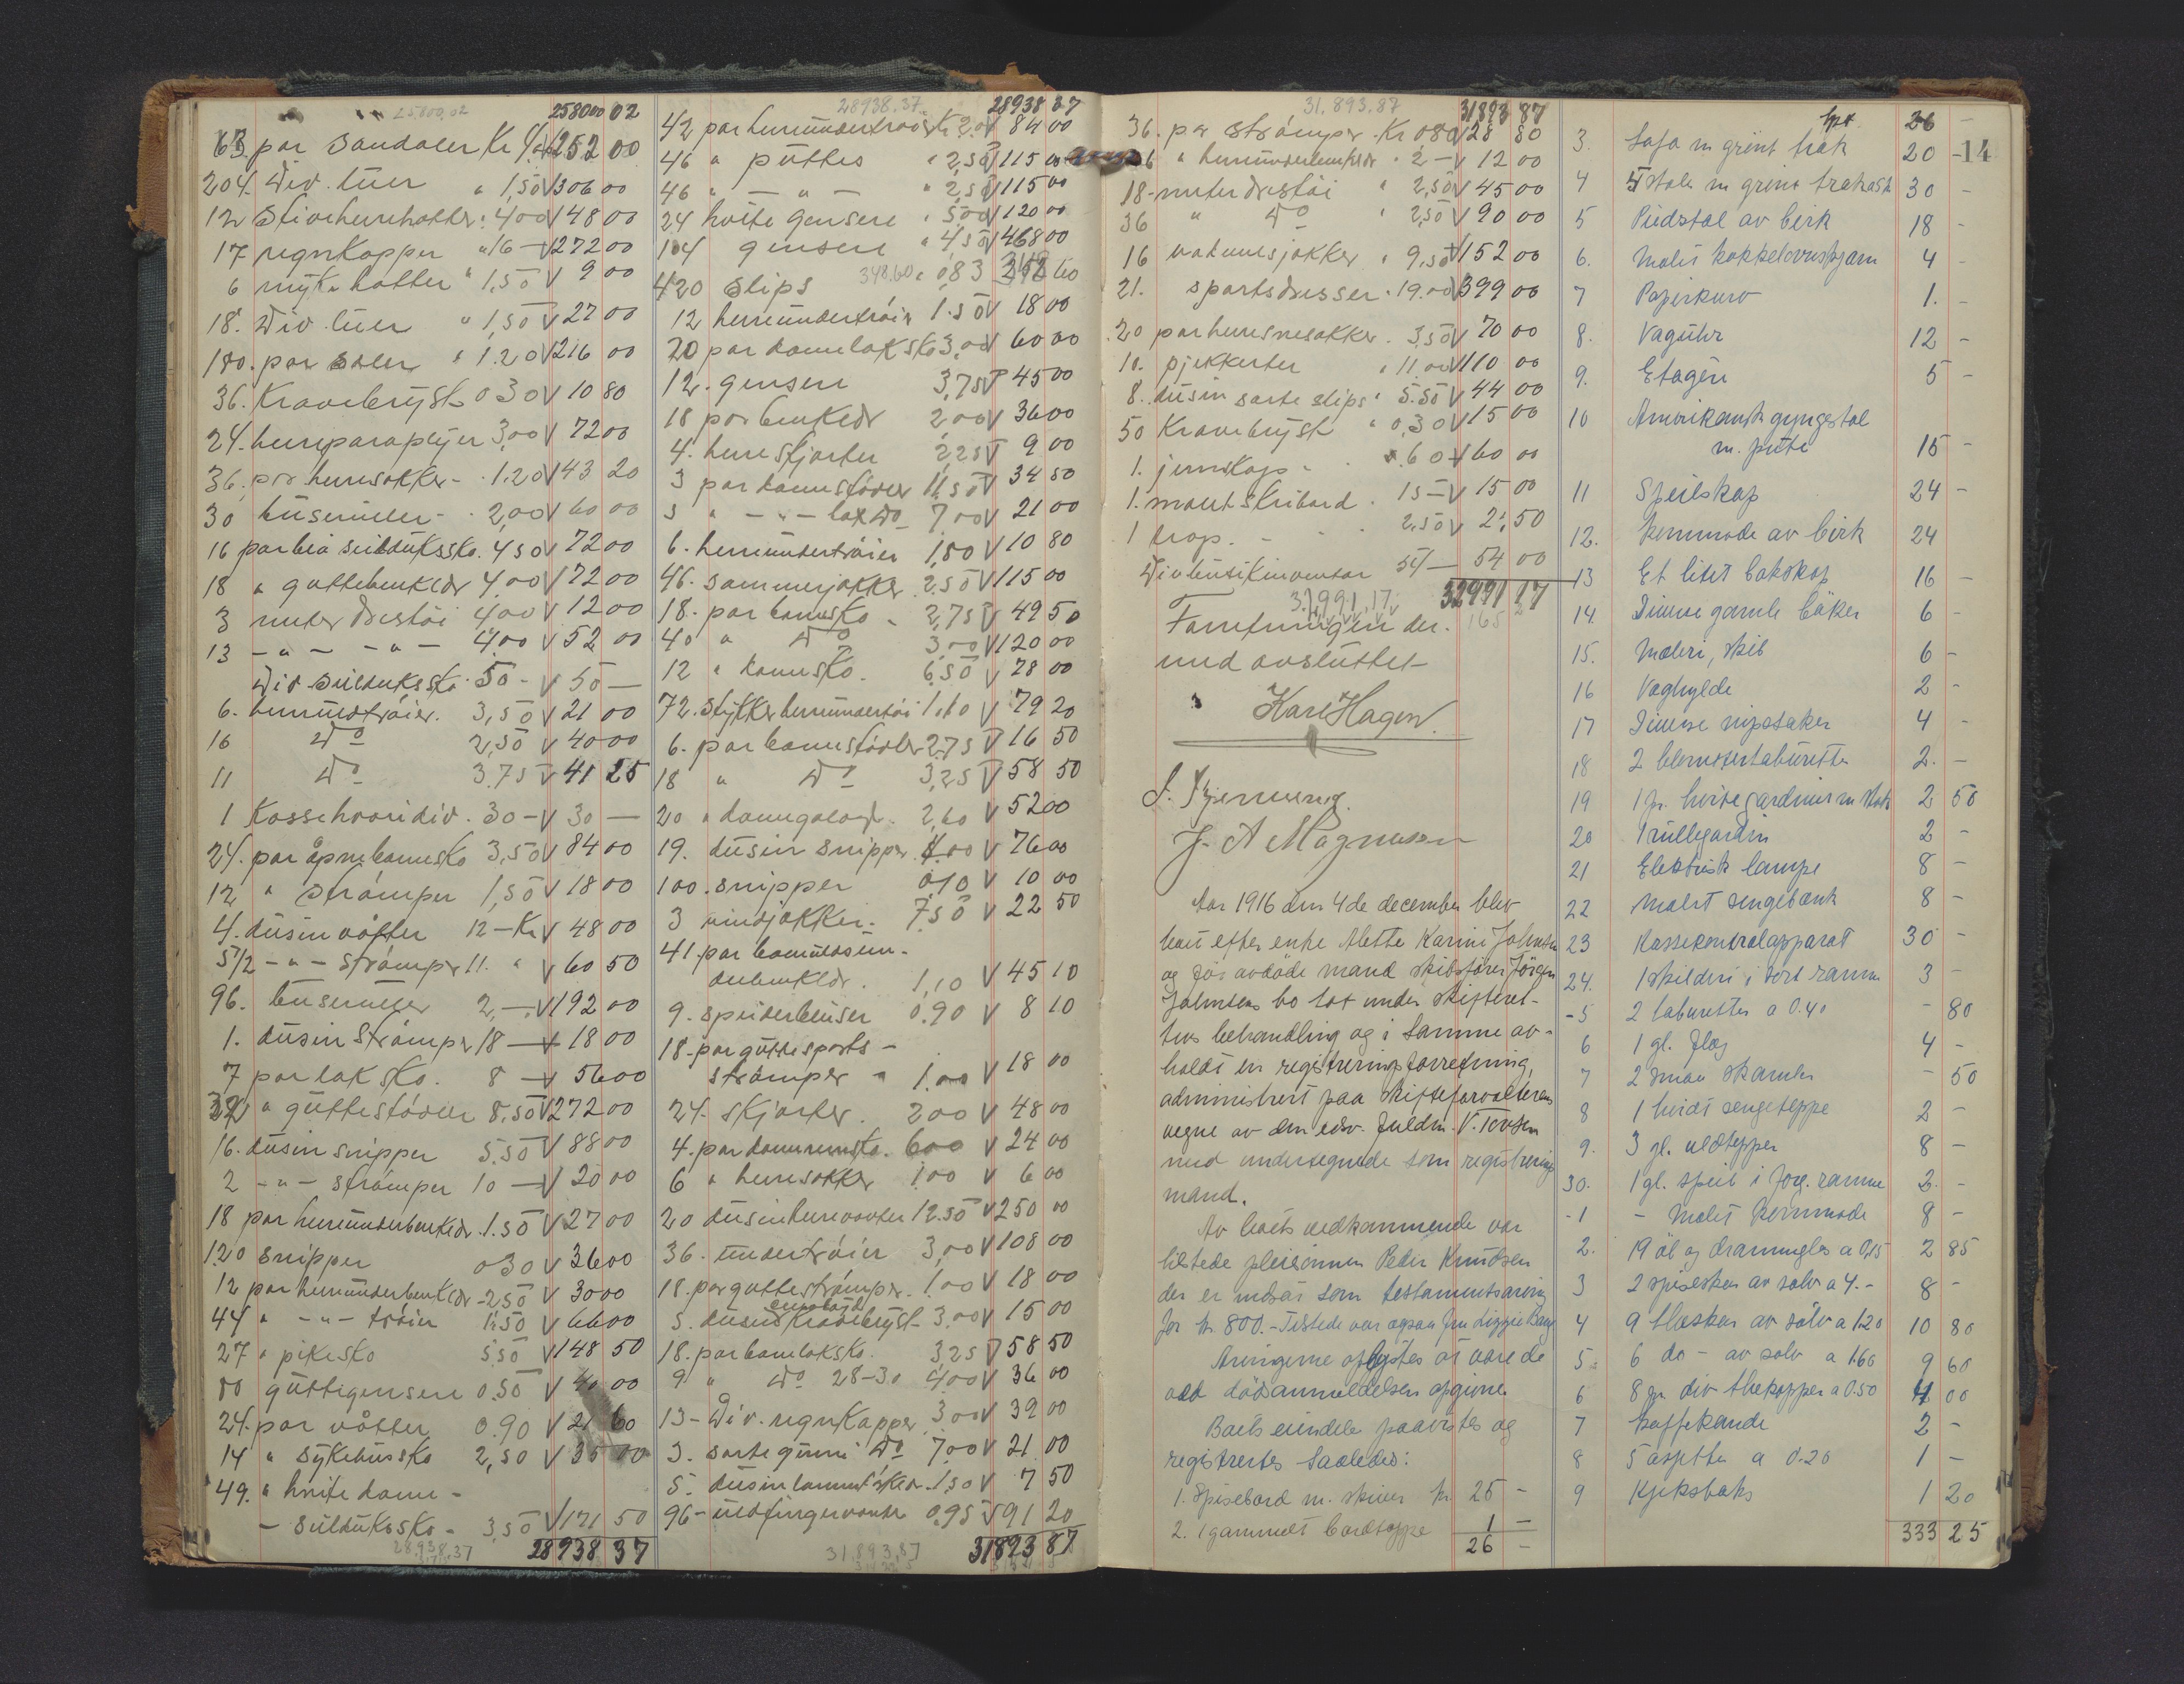 25800,02 25800 02
63. par Sandaler Kr 4,00 252 00
204. Div. luer " 1,50 306 00
12 Stive herrehatter " 4,00 48 00
17 regnkapper " 16 - 272 00
6 myke hatter " 1,50 9 00
18. Div. luer " 1,50 27 00
180. par såler " 1.20 216 00
36. Kravebryst 0 30 10 80
24. herreparaplyer 3,00 72 00
36. par herresokker - 1.20 43 20
30 buseruller - 2,00 60 00
16 par blå seildukssko. 4 50 72 00
18 " guttebenklær 4,00 72 00
3 meter Drestøi 4,00 12 00
13 - " - - " - 4,00 52 00
Div seildukssko 50 - 50 —
6. herreundtrøier. 3,50 21 00
16 Do 2,50 40 00
11 Do 3.75 41 25
1 Kasse hvori div. 30 - 30 —
24. par åpne barnesko 3,50 84 00
12 " Strømper 1,50 18 00
4. dusin våtter 12 - Kr 48 00
5 1/2 - " - Strømper 11. " 60 50
96. buseruller 2,- 192 00
1. dusin Strømper 18 — 18 00
7 par laksko. 8 — 56 00
32 " guttestøvler 8,50 272 00
16. dusin snipper 5.50 88 00
2 - " - strømper 10 — 20 00
18 par herreunderbenklær. 1.50 27 00
120 snipper 0 30 36 00
12 par herreunderbenklær - 2,50 30 00
44 " - " - trøier 1,50 66 00
27 " pikesko 5,50 148 50
80 guttegensere 0.50 40 00
24. par våtter 0.90 21 60
14 " Sykehussko 2,50 35 00
49. " hvite dame -
- seildukssko - 3,50 171 50
28938,37 28938 37
28938.37. 28938 37
42 par herreunderbenklær Kr 2,00 84 00
46 " puttes " 2,50 115 00
46 " — " — " 2,50 115 00
24 hvite gensere " 5,00 120 00
104 gensere " 4,50 468 00
420 Slips 348.60 " 0,83 348 60
12 herreundertrøier 1.50 18 00
20 par damelaksko 3,00 60 00
12. gensere 3,75 45 00
18 par benklær 2,00 36 00
4. herreskjorter 2,25 9 00
3 par damestøvler 11,50 34 50
3 " - " - lax Do 7,00 21 00
6. herreundertrøier 1,80 10 80
46. sommerjakker 2.50 115 00
18. par barnesko - 2,75 49 50
40 " Do 3,00 120 00
12 " damesko. 6,50 78 00
72. stykker herreundertøi 1.10 79 20
6. par barnestøvler 2,75 16 50
18 " Do 3,25 58 50
20 " damegalosk. 2,60 52 00
19. dusin snipper. 4.00 76 00
100. snipper 0,10 10 00
3 vindjakker. 7,50 22 50
41. par barneundern-
derbenklær. 1,10 45 10
9. speiderbluser 0.90 8 10
18 par guttesports -
strømper " 1.00 18 00
24. Skjorter. 2 00 48 00
4. par dameremsko. 6 00 24 00
6 " herresokker 1.00 6 00
20 dusin herrevanter 12.50 250 00
36. undertrøier 3,00 108 00
18. par guttestrømper. 1.00 18 00
5. dusin Kravebryst 3,00 15 00
18. par barnelaksko. 3.25 58 50
9 " Do 28-30 4,00 36 00
13 - Div. regnkapper 3,00 39 00
3. sorte gummi Do 7,00 21 00
5. dusin lommetørklær. 1.50 7 50
96 - uldfingervanter 0.95 91 20
31.893,87 31893 87
31.893.87 31893 87
36. par Strømper. Kr 0 80 28 80
6 " herreunderbenklær " 2 - 12 00
18 - meter drestøi " 2,50 45 00
36 " Do " 2,50 90 00
16 vatmelsjakker " 9,50 152 00
21. sportsdresser. 19.00 399 00
20 par herresnesokker. 3.50 70 00
10. pjekkerter " 11.00 110 00
8. dusin sorte slips " 5.50 44 00
50 Kravebryst " 0,30 15 00
1. jernskap - 60 60 00
1. malt skribord. 15 - 15 00
1 trap. - 2,50 2,50
Div butikinventar 54 — 54 00
31,991,17 32991 17
Forretningen der-
med avsluttet
Kare Hagen.
J. A Magnussen
Aar 1916 den 4de december blev
boet efter enke Alette Karine Johnsen
og før avdøde mand skibsfører Jørgen
Johnsens bo tat under skifteret-
tens behandling og i samme av-
holdt en registreringsforretning,
administrert paa skifteforvalterens
vegne av den edsv. fuldm. V. Torsen
med undertegnede som registrerings
mand.
Av boets vedkommende var
tilstede pleiesønnen Peder Knudsen
der er indsat som testamentsarving
for kr. 800.- Tilstede var ogsaa fru Lizzie Bang
Arvingerne oplystes at være de
ved dødsanmeldelsen opgivne.
Boets eiendele paavistes og
registrertes saaledes:
1. Spisebord m. skiver kr. 25 -
2. 1 gammelt bordteppe 1 -
26 -
Tpt. 26 -
3. Sofa m grønt træk 20 - 14
4 4 stoler m grønt trækast 30 -
5 Piedstal av birk 18 -
6. Malet kakkelovnskjærm 4 -
7 Papirkurv 1. -
8. Vaguhr 12 -
9. Etagère 5 -
10 Amerikansk gyngestol
m. pute 15 -
11 Speilskap 24 -
12. Kommode av birk 24
13 Et litet bokskap 16 -
14. Diverse gamle bøker 6 -
15. Maleri, skib 6 -
16 Væghylde 2 -
17 Diverse nipssaker 4 -
18 2 blomstertaburetter 2. -
19 1 pr. hvite gardiner m stok 2 50
20 1 rullegardin 2 -
21 Elektrisk lampe 8 -
22 Malert sengebænk 8 -
23 Kassekontrolapparat 30 -
24. 1 skilderi i sort ramme 3 -
-5 2 taburetter a 0.40 - 80
6 1 gl. flag 4 -
7 2 smaa skamler - 50
8 1 hvidt sengeteppe 2 -
9. 3 gl. uldtepper 8 -
30. 1 gl. speil i forg. ramme 2. -
-1 - Malet kommode 8 -
2. 19 øl og dramglas a 0,15 2 85
3 2 spiseskeer av sølv a 4.- 8 -
4 9 theskeer av sølv a 1.20 10 80
5. 6 do - av sølv a 1.60 9 60
6 8 pr. div thekopper a 0.50 4 00
7 Kaffekande 2 -
8 5 asjetter a 0.20 1 -
9 Kjeksboks 1 20
333 25